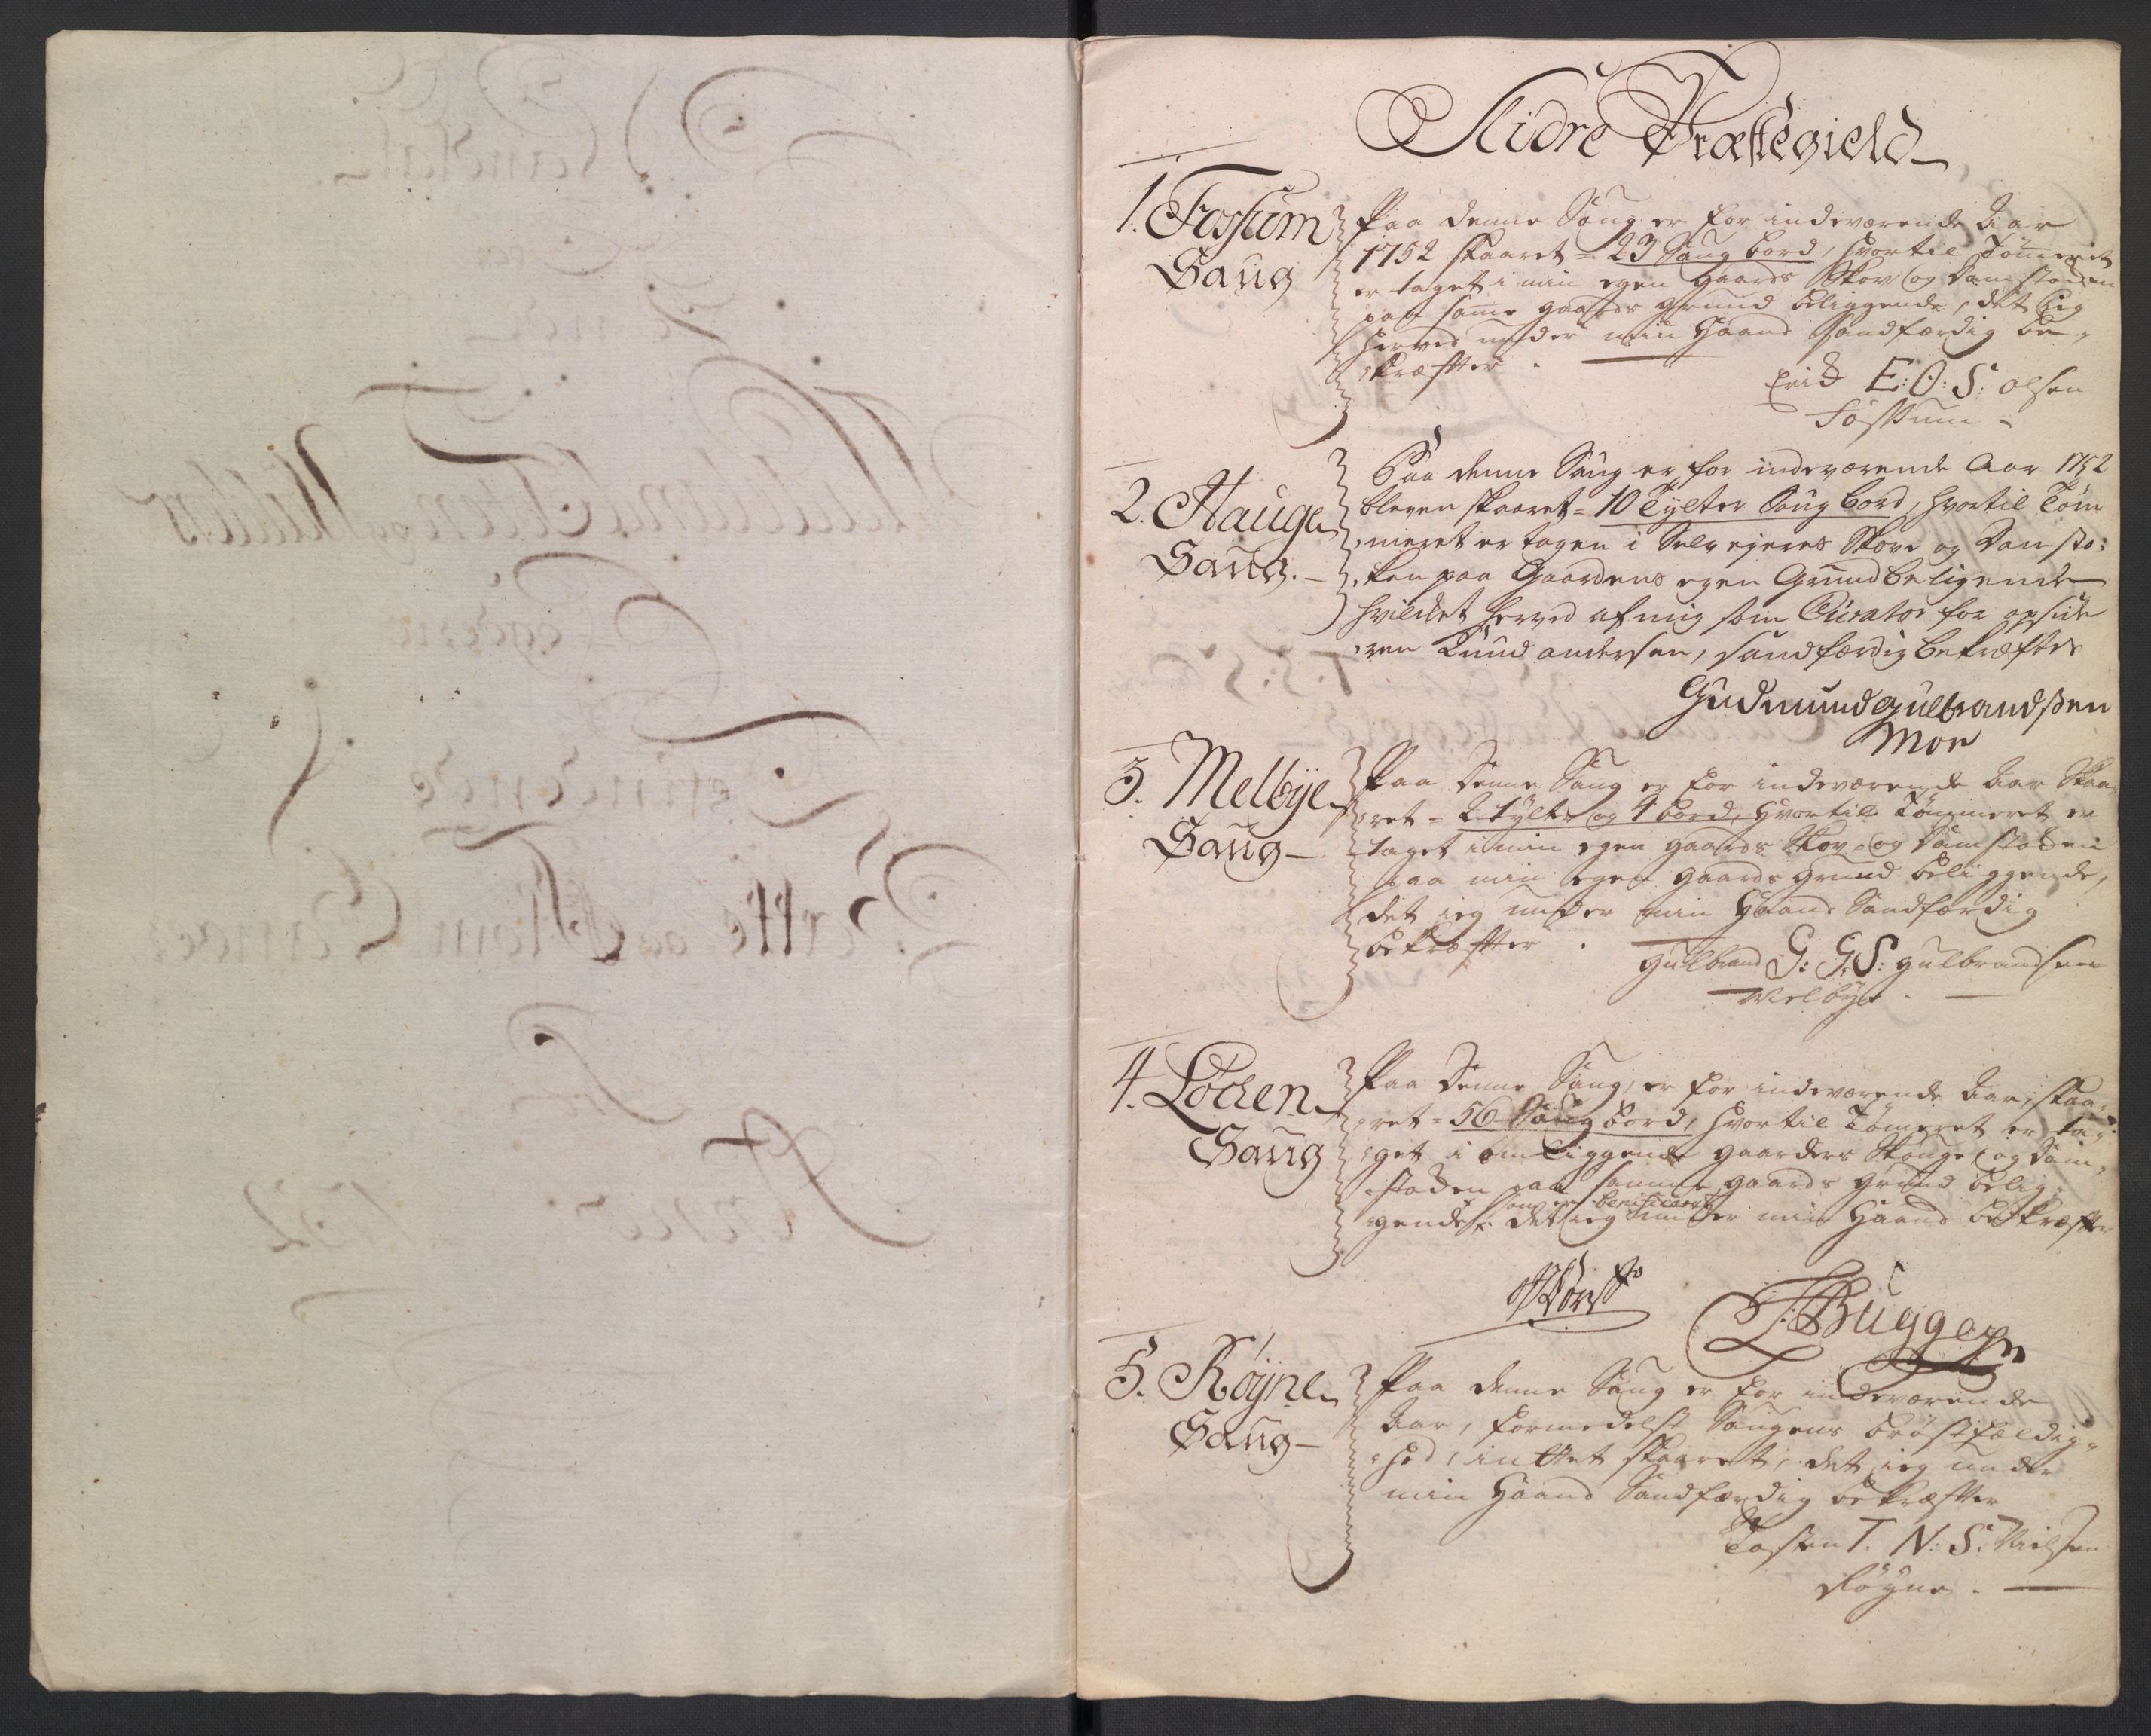 Slidre Præstegield
1. Fossum
Saug
Paa denne Saug er for indeværende Aar
1752 skaaret = 23 Saug bord, hvortil Tömeret
er taget i min egen gaards Skov og Damstoden
paa samme gaards grund beliggende, det ieg
herved under min Haand sandfærdig be¬
kræfter.
E: O: S: olsen
Fossum
2. Hauge
Saug.
Paa denne Saug er for indeværende Aar 1752
bleven skaaret = 10 Tylter Saug bord, hvortil Töm
meret er tagen i Selvejeres Skove og Damsto¬
ken paa Gaardens egen Grund beligende
hvilcket herved af mig som Curator for opside
ren Knud andersen, sandfærdig bekræftes
Gudmund gulbrandsen
Moe
3. Melbye
Saug
Paa denne Saug er for indeværende Aar Skaa
ret = 2 tylter og 4 bord, hvortil Tömmeret er
taget i min egen gaards Skov og Damstoden
paa min egen gaards grund beliggende,
det ieg under min Haand Sandfærdig
bekræfter.
gulbrand G: G: S: gulbrandsen
Melbye.
4. Löchen
Saug
Paa denne Saug, er for indeværende Aar skaa¬
ret = 56 Saug bord, hvortil Tömeret er ta¬
get i omliggende gaarders Skouge, og Dam¬
stoden paa samme gaards grund belig¬
som er beneficeret
gende: det ieg under min Haand bekræfter
Bugge
5. Röyne
Saug
Paa denne Saug er for indeværende
Aar, formedelst Saugens bröstfældig¬
hed, intet skaaret, det ieg under
min Haand Sandfærdig bekræfter
Tosten T. N: S: Nielsen
Röyne.